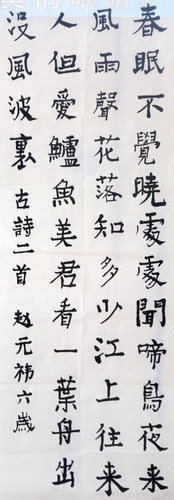 春眠不覺曉處處聞啼鳥夜来
風雨聲花落知多少江上往来
人但愛鱸魚美君看一葉舟出
没風波裏 古詩二首 赵元祎六歲